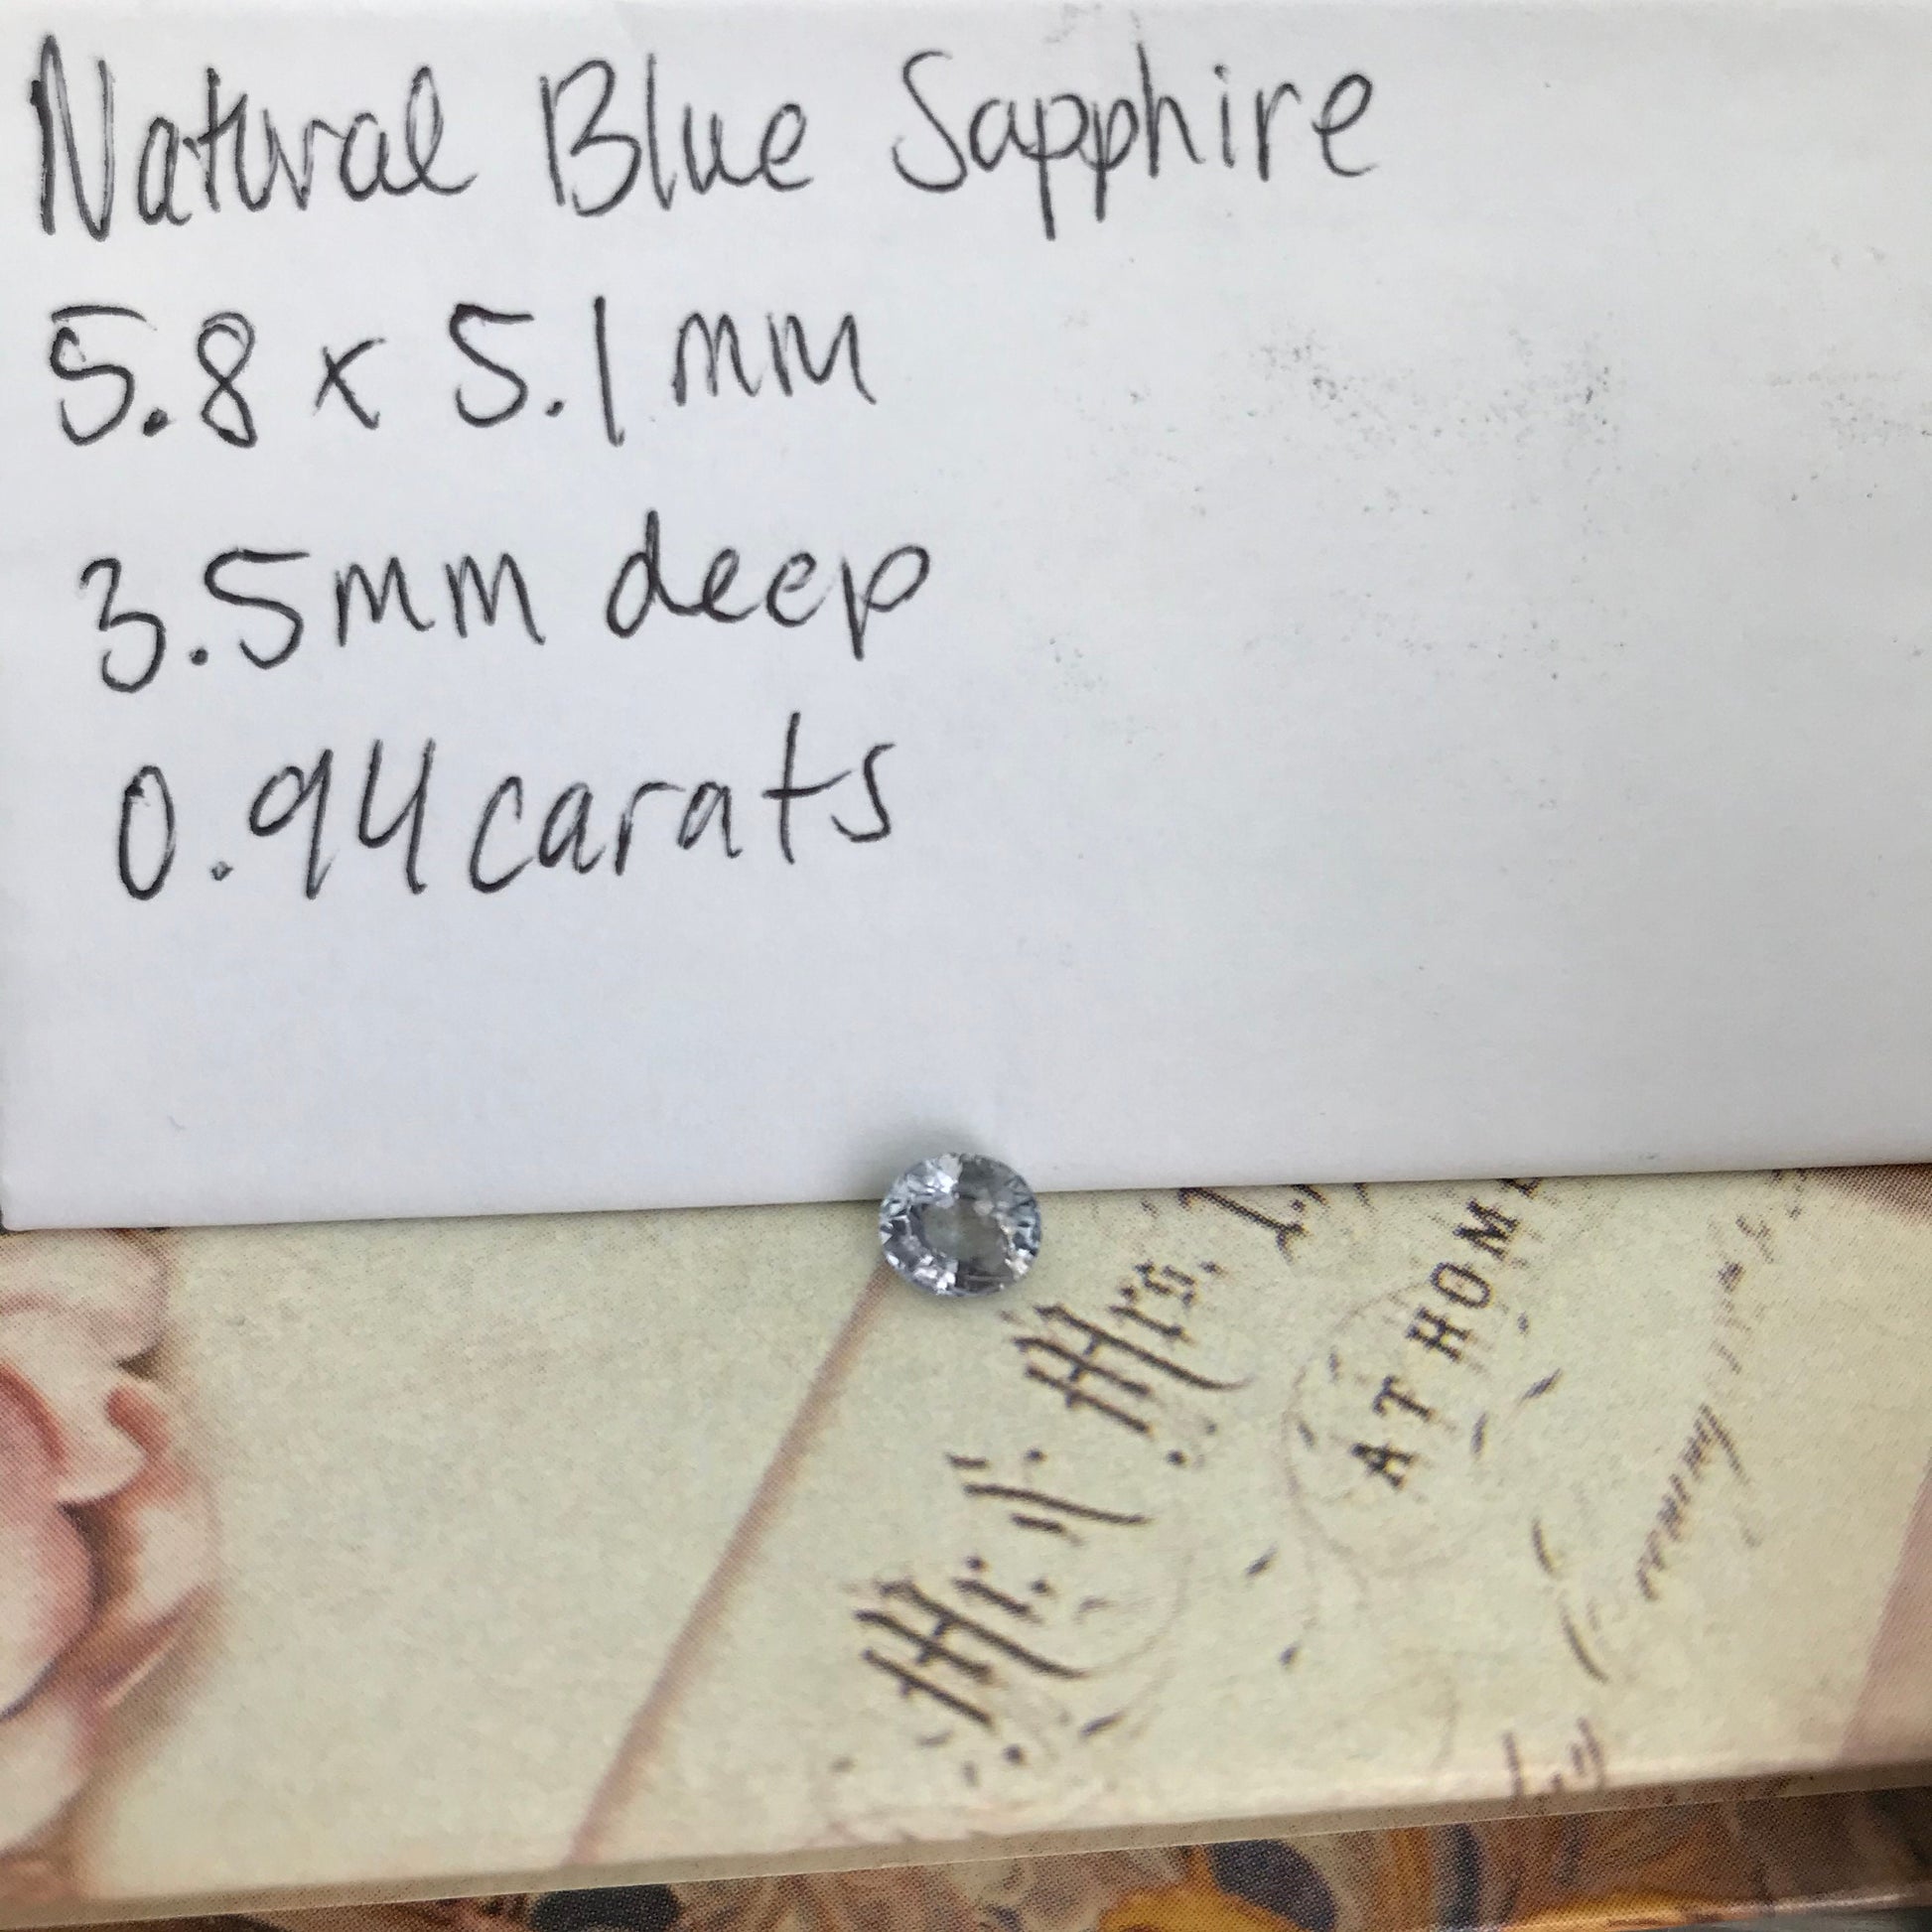 Natural Blue Sapphire
5.8 x 5.1mm
3.5mm deep
0.94 carats
Mrs.
AT HOME
Mr.